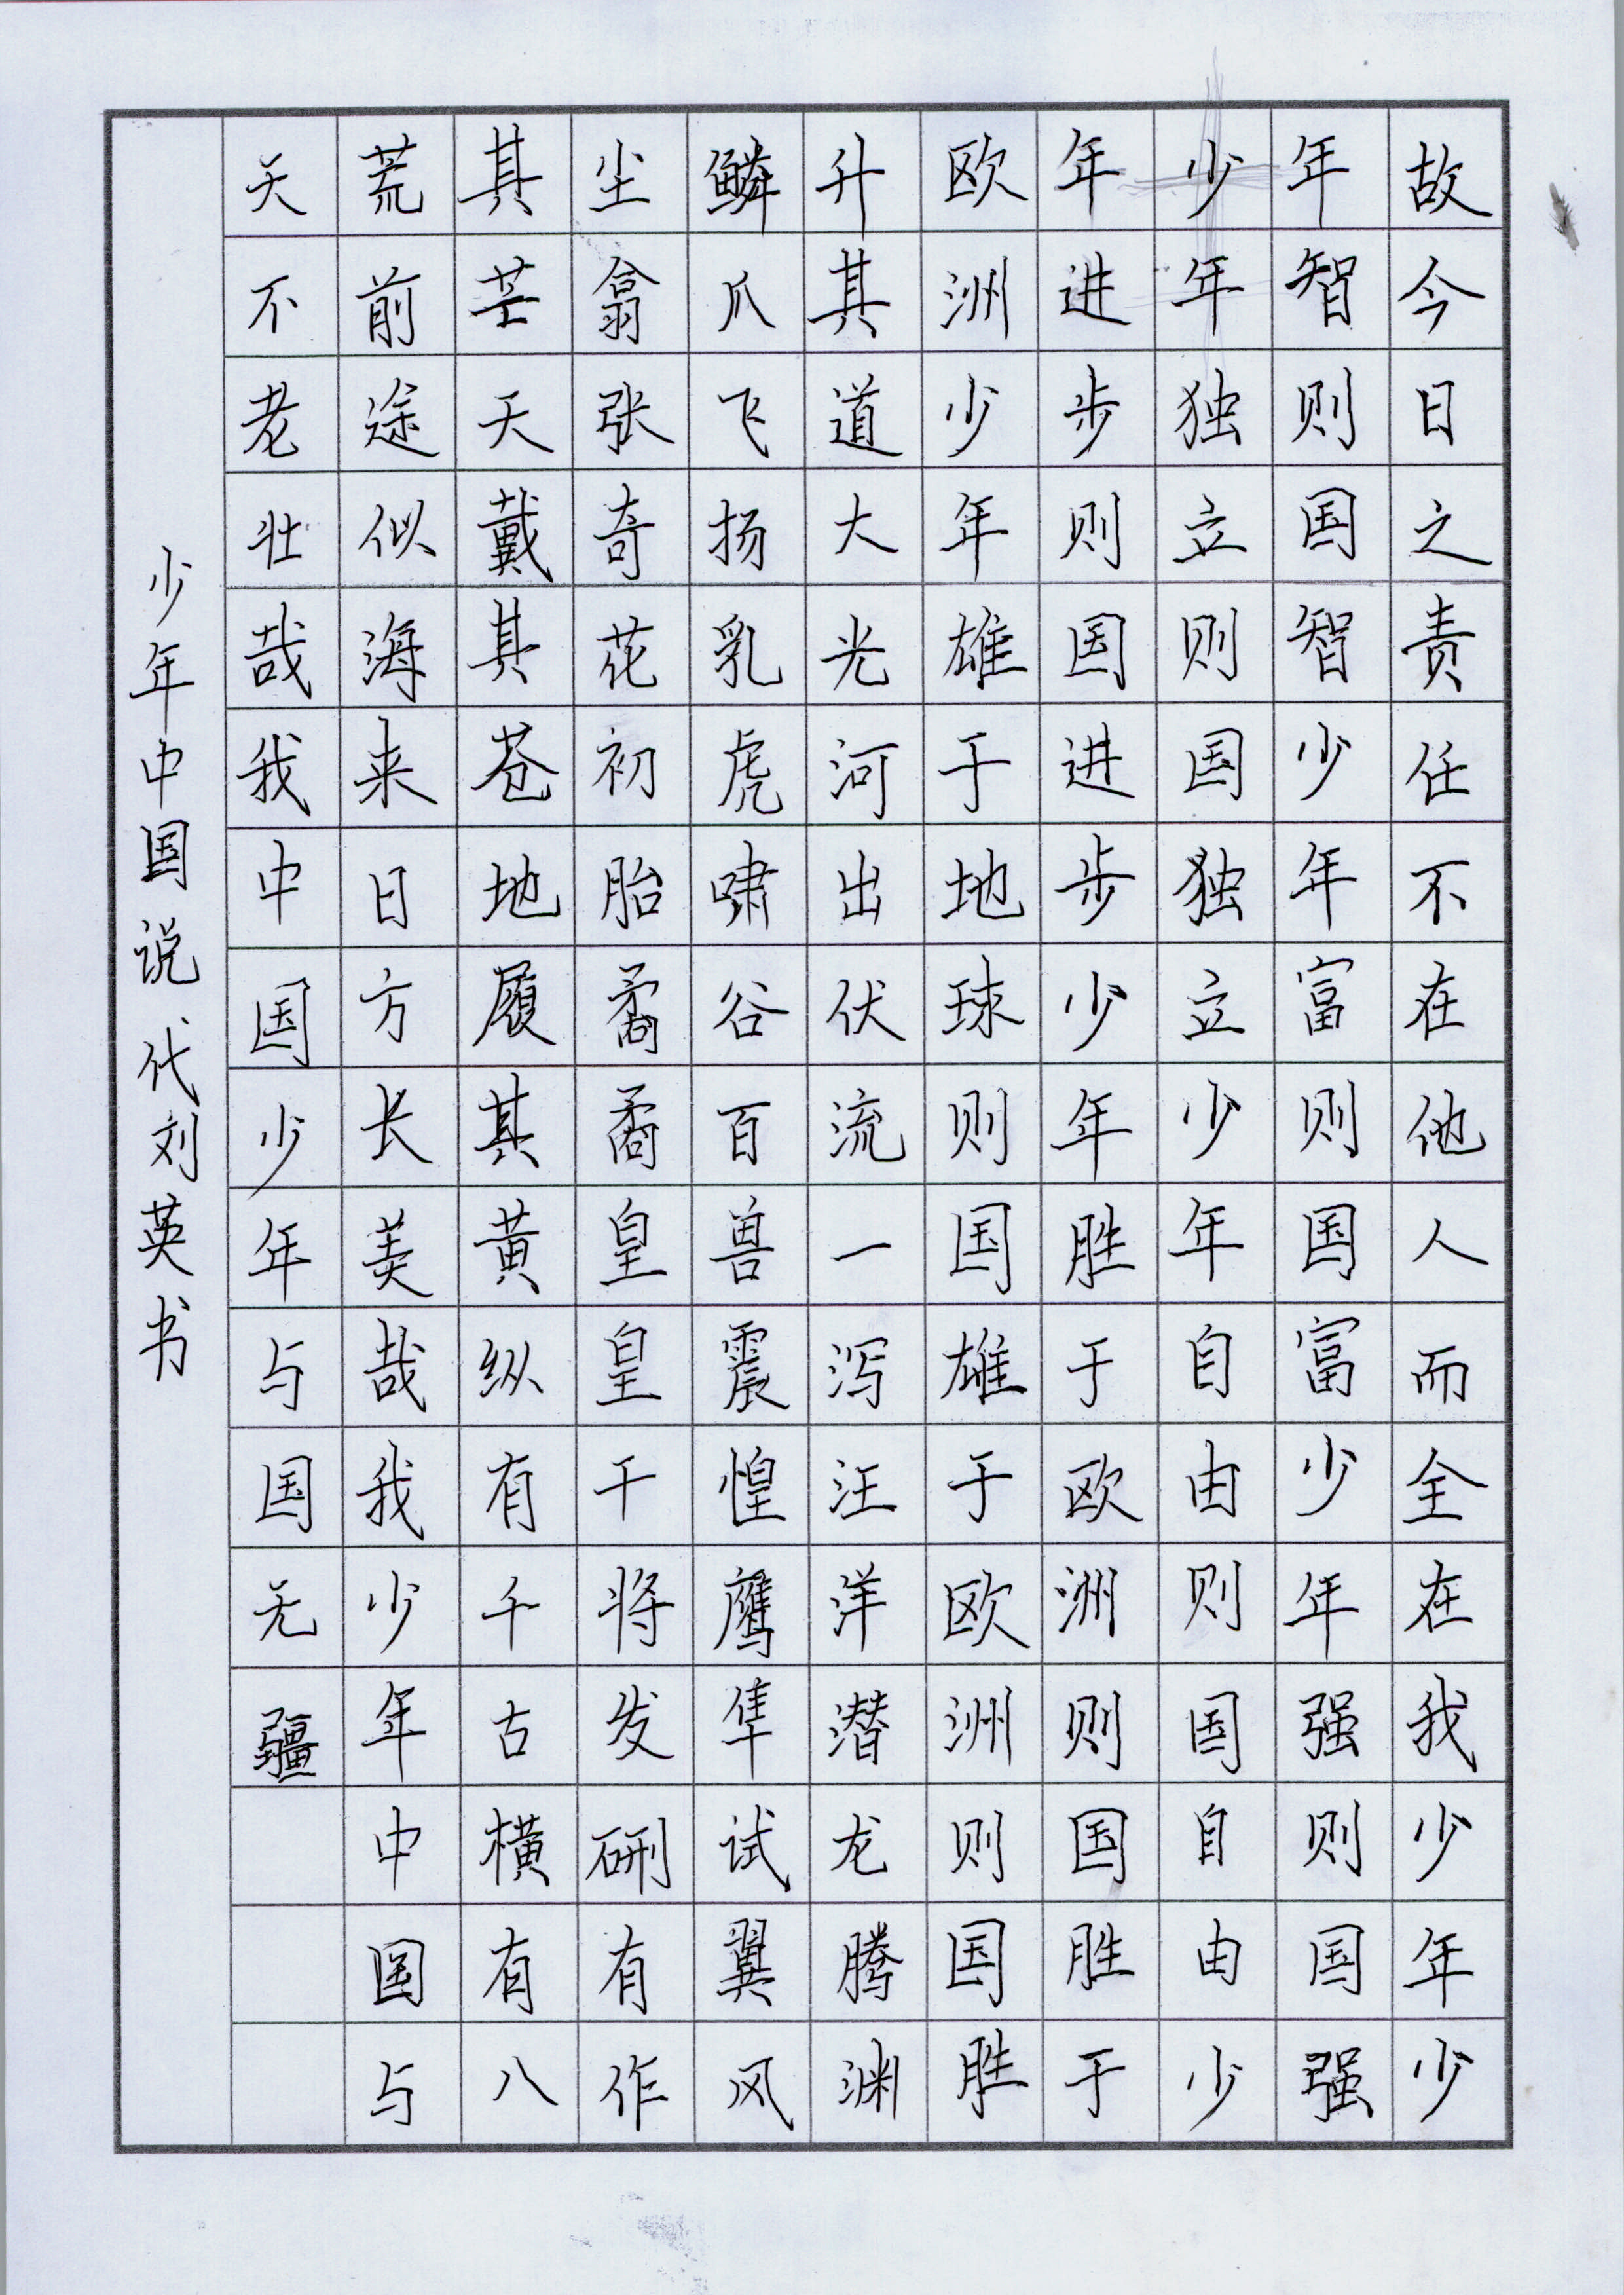 故今日之责任不在他人而全在我少年少
年智则国智少年富则国富少年强则国强
少年独立则国独立少年自由则国自由少
年进步则国进步少年胜于欧洲则国胜于
欧洲少年雄于地球则国雄于欧洲则国胜
升其道大光河出伏流一泻汪洋潜龙腾渊
鳞爪飞扬乳虎啸谷百兽震惶鹰隼试翼风
尘翕张奇花初胎矞矞皇皇干将发硎有作
其芒天戴其苍地履其黄纵有千古横有八
荒前途似海来日方长美哉我少年中国与
天不老壮哉我中国少年与国无疆
少年中国说 代刘英书